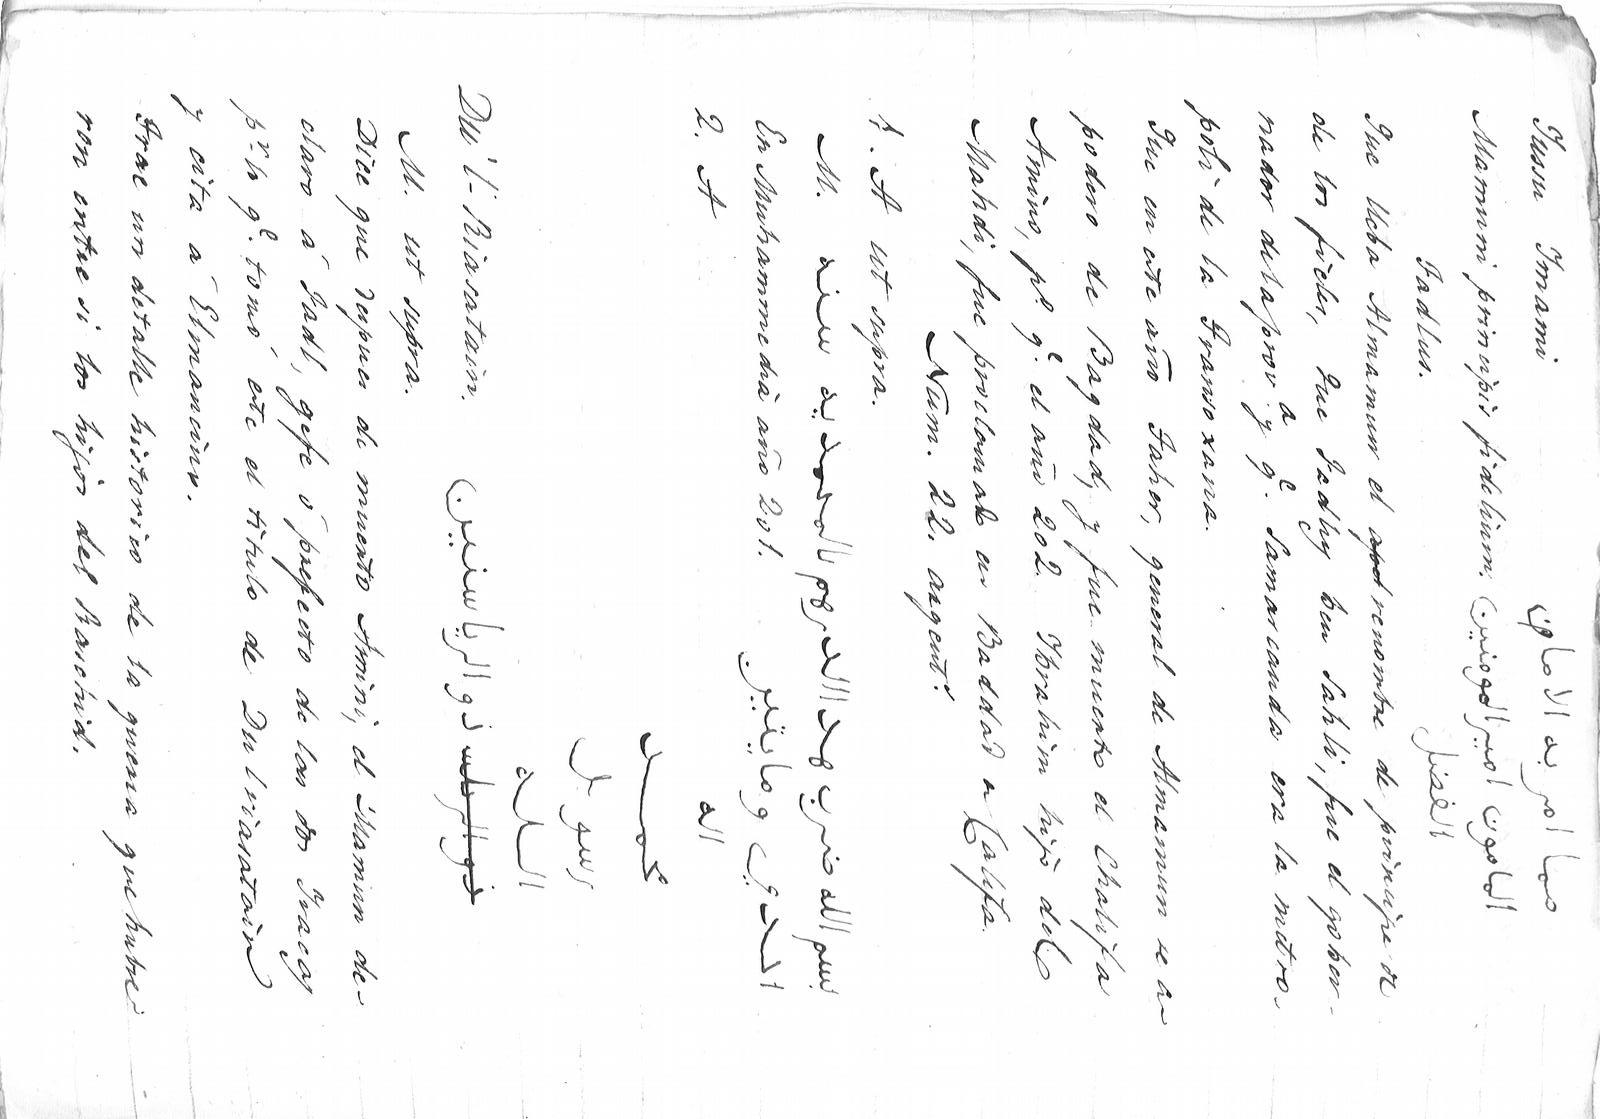 Jussu Imami مما امر به الامام
Mamuni principis fidelium. المامون امير المومنين
Fadlus. الفضل
Que Ucba Almamun el renombre de principe de
de los fieles, que Fadlus ben Sahli, fue el gober-
nador de la prov.a y q.e Samarcanda era la metro-
poli de la Transoxana.
Que en este año Taher, general de Almamun se a-
podero de Bagdad, y fue muerto el Chalifa
Amino, p.s q.e el año 202. Ibrahim hijo del
Mahdi, fue proclamado en Baddad a Califa.
Num. 22. argent.
1. A ut supra.
M. بسم الله ضرب هذا الدرهم بالمحمدية سنة
En Muhammedia año 201. احدى و مايتين
2. A الله
محمد
رسول
الله
Du'l-Riasatain. ذو الرياستين
M. ut supra.
Dice que despues de muerto Amini, el Mamun de-
claro á Fadl, gefe ó prefecto de las dos Iracas
p.r lo q.e tomó este el titulo de Dulriasatain
y cita á Elmacino.
Trae un detalle historico de la guerra que hubie
ron entre si los hijos del Raschid.